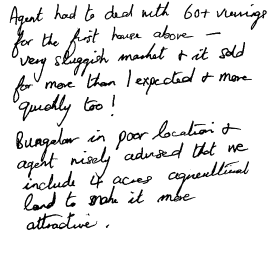 Agent had to deal with 60+ viewings
for the first house above –
very sluggish market & it sold
for more than I expected & more
quickly too!
Bungalow in poor location &
agent wisely advised that we
include 4 acres agricultural
land to make it more
attractive.